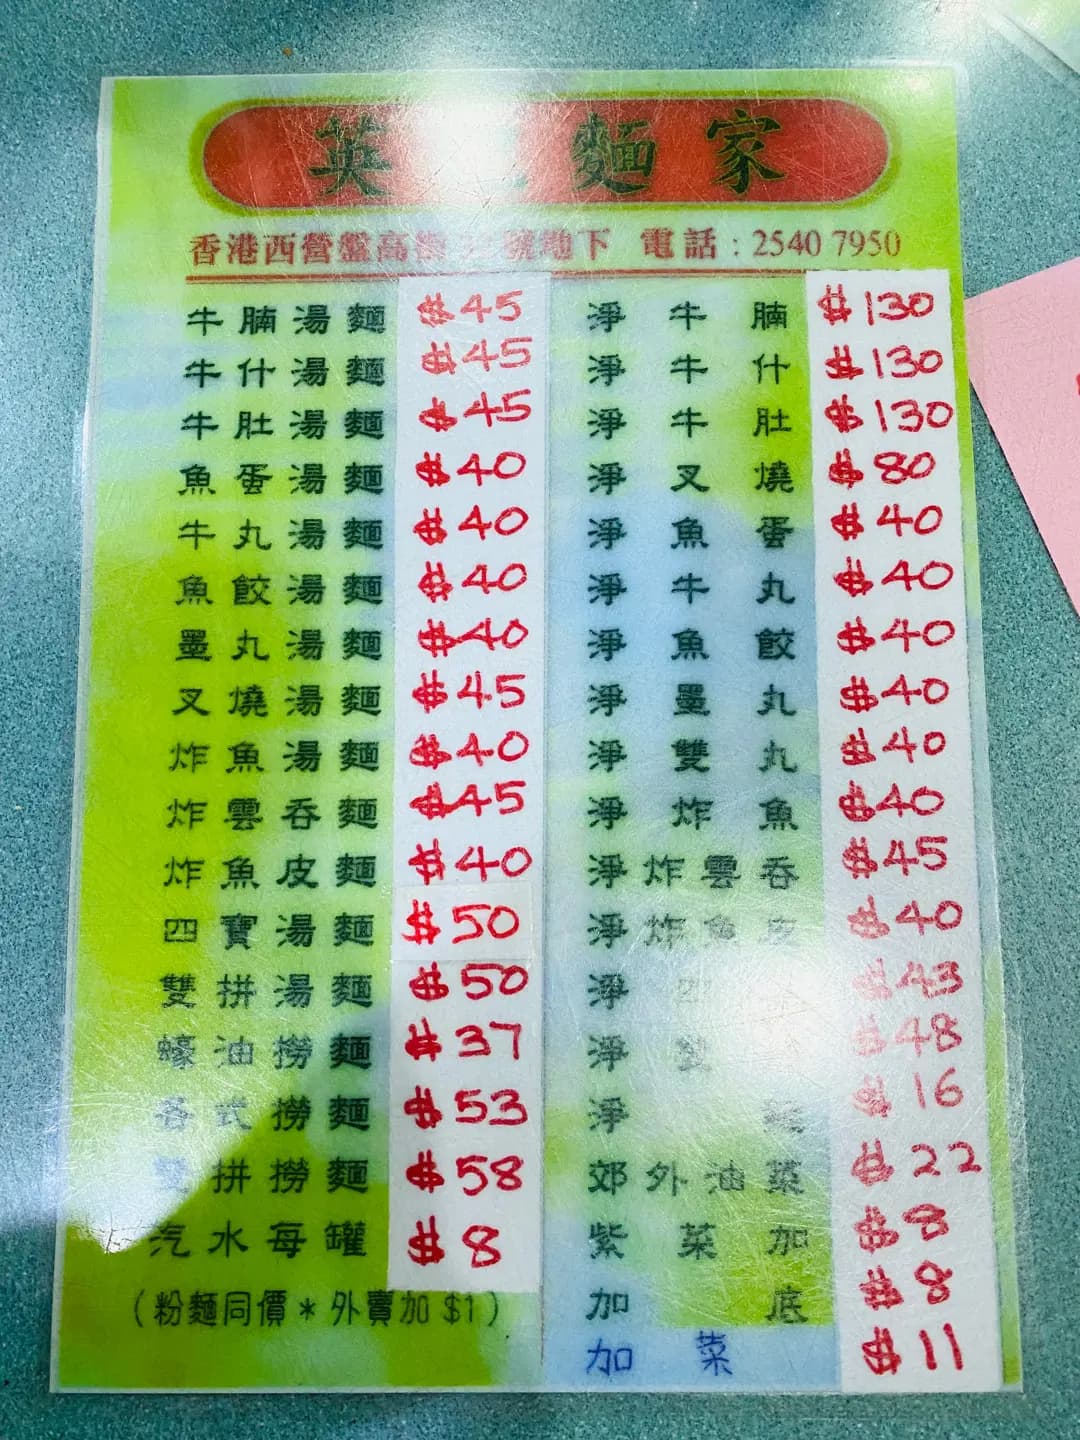 英 麵 家
香港西營盤高街 號地下 電話：2540 7950
牛腩湯麵 $45
牛什湯麵 $45
牛肚湯麵 $45
魚蛋湯麵 $40
牛丸湯麵 $40
魚餃湯麵 $40
墨丸湯麵 $40
叉燒湯麵 $45
炸魚湯麵 $40
炸雲吞麵 $45
炸魚皮麵 $40
四寶湯麵 $50
雙拼湯麵 $50
蠔油撈麵 $37
各式撈麵 $53
雙拼撈麵 $58
汽水每罐 $8
（粉麵同價＊外賣加 $1）
淨牛腩 $130
淨牛什 $130
淨牛肚 $130
淨叉燒 $80
淨魚蛋 $40
淨牛丸 $40
淨魚餃 $40
淨墨丸 $40
淨雙丸 $40
淨炸魚 $40
淨炸雲吞 $45
淨炸魚皮 $40
淨四 $43
淨雙 $48
淨 $16
郊外油菜 $22
紫菜加 $8
加底 $8
加菜 $11